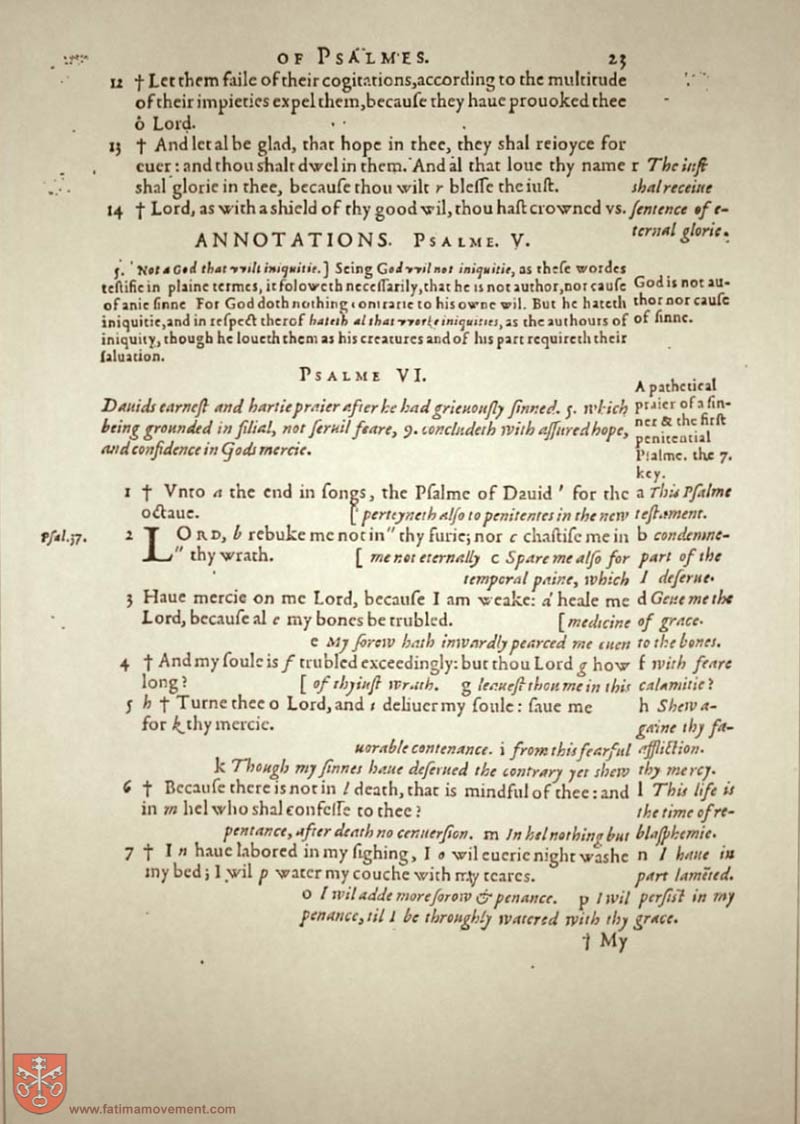 OF PSALMES. 23
12 † Let them faile of their cogitations, according to the multitude
of their impieties expel them, becauſe they haue prouoked thee
ô Lord.
13 † And let al be glad, that hope in thee, they shal reioyce for
euer: and thou shalt dwel in them. And al that loue thy name r The iuſt
shal glorie in thee, becauſe thou wilt r bleſſe the iuſt. shal receiue
14 † Lord, as with a shield of thy good wil, thou haſt crowned vs. ſentence of e-
ternal glorie.
ANNOTATIONS. PSALME. V.
5. Not a God that vvilt iniquitie.] Seing God vvil not iniquitie, as theſe wordes
teſtifie in plaine termes, it foloweth neceſſarily, that he is not author, nor cauſe God is not au-
of anie ſinne For God doth nothing contrarie to his owne wil. But he hateth thor nor cauſe
iniquitie, and in reſpect therof hateth al that vvorke iniquities, as the authours of of ſinne.
iniquity, though he loueth them as his creatures and of his part requireth their
ſaluation.
PSALME VI.
A pathetical
Dauids earneſt and hartie praier after he had grieuouſly ſinned. 5. which praier of a ſin-
being grounded in filial, not ſeruil feare, 9. concludeth with aſſured hope, ner & the firſt
and confidence in Gods mercie. penitential
Pſalme. the 7.
key.
1 † Vnto a the end in ſongs, the Pſalme of Dauid ' for the a This Pſalme
octaue. [ perteyneth alſo to penitentes in the new teſtament.
Pſal.37. 2 LORD, b rebuke me not in " thy furie; nor c chaſtiſe me in b condemne-
" thy wrath. [ me not eternally c Spare me alſo for part of the
temporal paine, which I deſerue.
3 Haue mercie on me Lord, becauſe I am weake: d heale me d Geue me the
Lord, becauſe al e my bones be trubled. [ medicine of grace.
e My ſorow hath inwardly pearced me euen to the bones.
4 † And my ſoule is f trubled exceedingly: but thou Lord g how f with feare
long? [ of thy iuſt wrath. g leaueſt thou me in this calamitie?
5 h † Turne thee o Lord, and i deliuer my ſoule: ſaue me h Shew a-
for k thy mercie. gaine thy fa-
uorable contenance. i from this fearful affliction.
k Though my ſinnes haue deſerued the contrary yet shew thy mercy.
6 † Becauſe there is not in l death, that is mindful of thee: and l This life is
in m hel who shal confeſſe to thee? the time of re-
pentance, after death no cenuerſion. m In hel nothing but blaſphemie.
7 † I n haue labored in my ſighing, I o wil euerie night washe n I haue in
my bed; I wil p water my couche with my teares. part lamēted.
o I wil adde more ſorow & penance. p I wil perſiſt in my
penance, til I be throughly watered with thy grace.
† My
www.fatimamovement.com